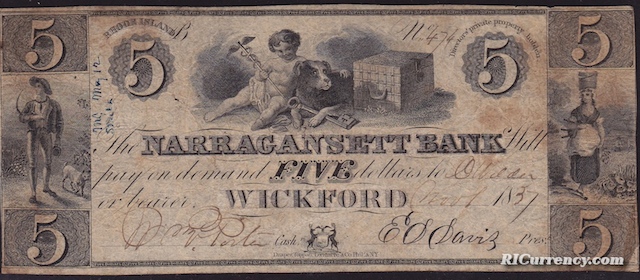 5 RHODE ISLAND B N. 5
5 5
Directors private property holden
The NARRAGANSETT BANK Will
pay on demand FIVE dollars to
or bearer. WICKFORD 1837
Wm. Porter Cash. E S Davis Pres.
5 5
RICurrency.com